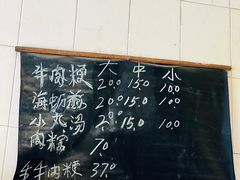 大 中 小
牛肉粳 20.0 15.0 10.0
海蛎煎 20.0 15.0 10.0
小丸汤 15.0 10.0
肉粽 7.0
牛肉粳 37.0